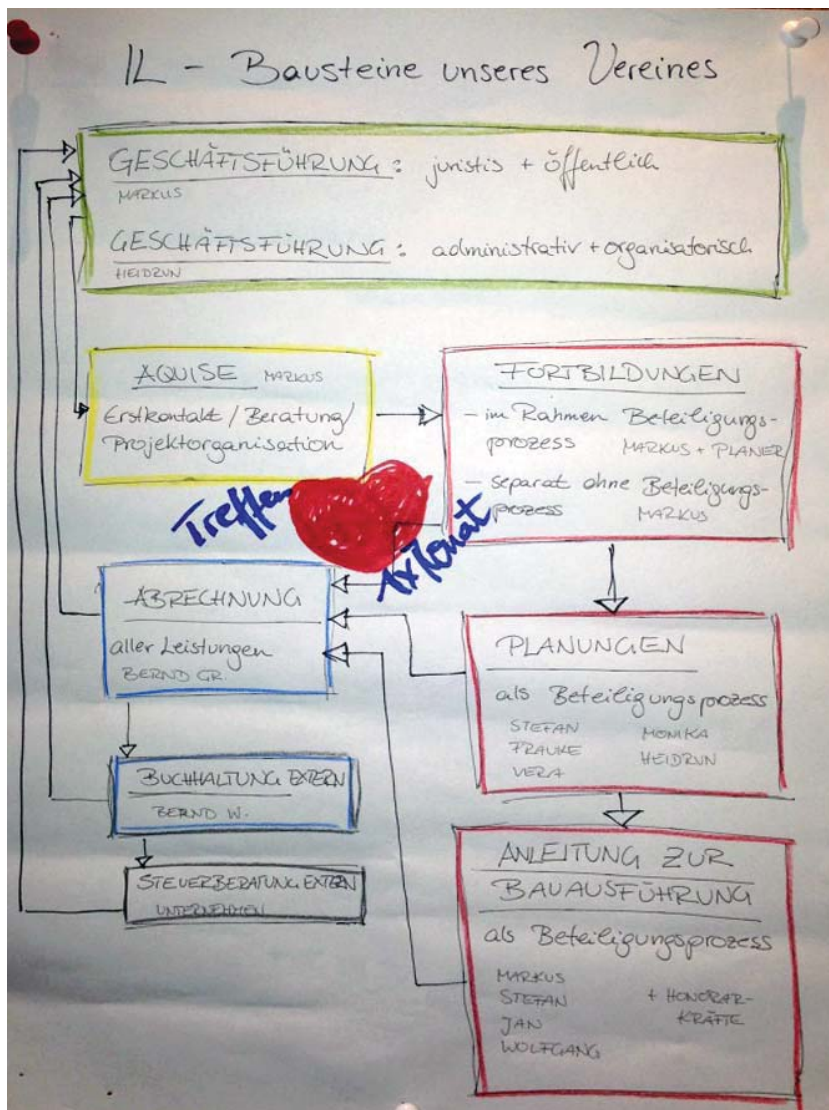 IL - Bausteine unseres Vereines
GESCHÄFTSFÜHRUNG: juristis + öffentlich
MARKUS
GESCHÄFTSFÜHRUNG: administrativ + organisatorisch
HEIDRUN
AQUISE MARKUS
Erstkontakt / Beratung /
Projektorganisation
FORTBILDUNGEN
- im Rahmen Beteiligungs-
prozess MARKUS + PLANER
- separat ohne Beteiligungs-
prozess MARKUS
Treffen
1x Monat
ABRECHNUNG
aller Leistungen
BERND GR.
PLANUNGEN
als Beteiligungsprozess
STEFAN MONIKA
FRAUKE HEIDRUN
VERA
BUCHHALTUNG EXTERN
BERND W.
STEUERBERATUNG EXTERN
UNTERNEHMEN
ANLEITUNG ZUR
BAUAUSFÜHRUNG
als Beteiligungsprozess
MARKUS
STEFAN + HONORAR-
JAN KRÄFTE
WOLFGANG